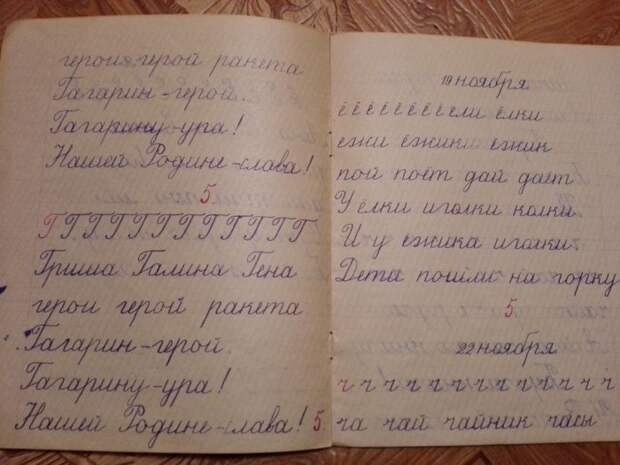 герои герой ракета
Гагарин-герой.
Гагарину-ура!
Нашей Родине-слава!
5.
Г Г Г Г Г Г Г Г Г Г Г Г
Гриша Галина Гена
герои герой ракета
Гагарин-герой.
Гагарину-ура!
Нашей Родине-слава! 5.
19 ноября
ё ё ё ё ё ё ё ё ели ёлки
ежи ёжики ёжик
пой поёт дай даёт
У ёлки иголки колки
И у ёжика иголки.
Дети пошли на горку
5.
22 ноября
ч ч ч ч ч ч ч ч ч ч ч ч ч ч
ча чай чайник часы